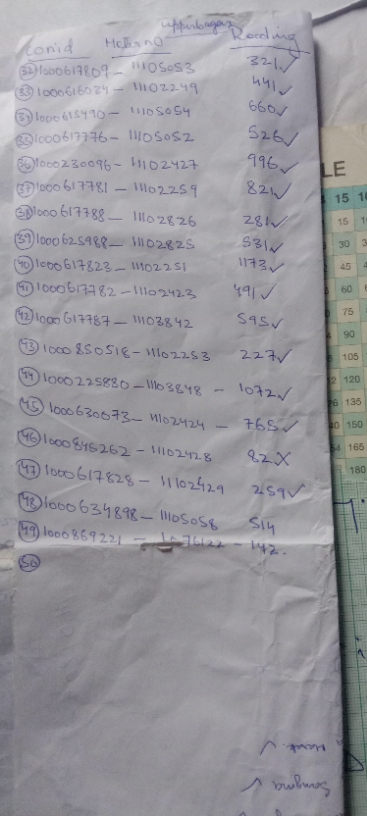 upperbagar
Conid Meterno Reading
(32) 1000617809 - 11105053 321 ✓
(33) 1000616034 - 11102249 441 ✓
(34) 1000615490 - 11105054 660 ✓
(35) 1000617776 - 11105052 526 ✓
(36) 1000230096 - 11102427 996 ✓
(37) 1000617781 - 11102259 821 ✓
(38) 1000617788 - 11102826 281 ✓
(39) 1000625988 - 11102825 531 ✓
(40) 1000617823 - 11102251 1173 ✓
(41) 1000617782 - 11102423 491 ✓
(42) 1000617787 - 11103842 595 ✓
(43) 1000850518 - 11102253 227 ✓
(44) 1000225880 - 11103848 - 1072 ✓
(45) 1000630073 - 11102424 - 765 ✓
(46) 1000845262 - 11102428 82 X
(47) 1000617828 - 11102429 259 ✓
(48) 1000634898 - 11105058 514
(49) 1000869221 - 1076122 - 142.
(50)
LE
15
15
30
45
60
75
90
105
120
135
150
165
180